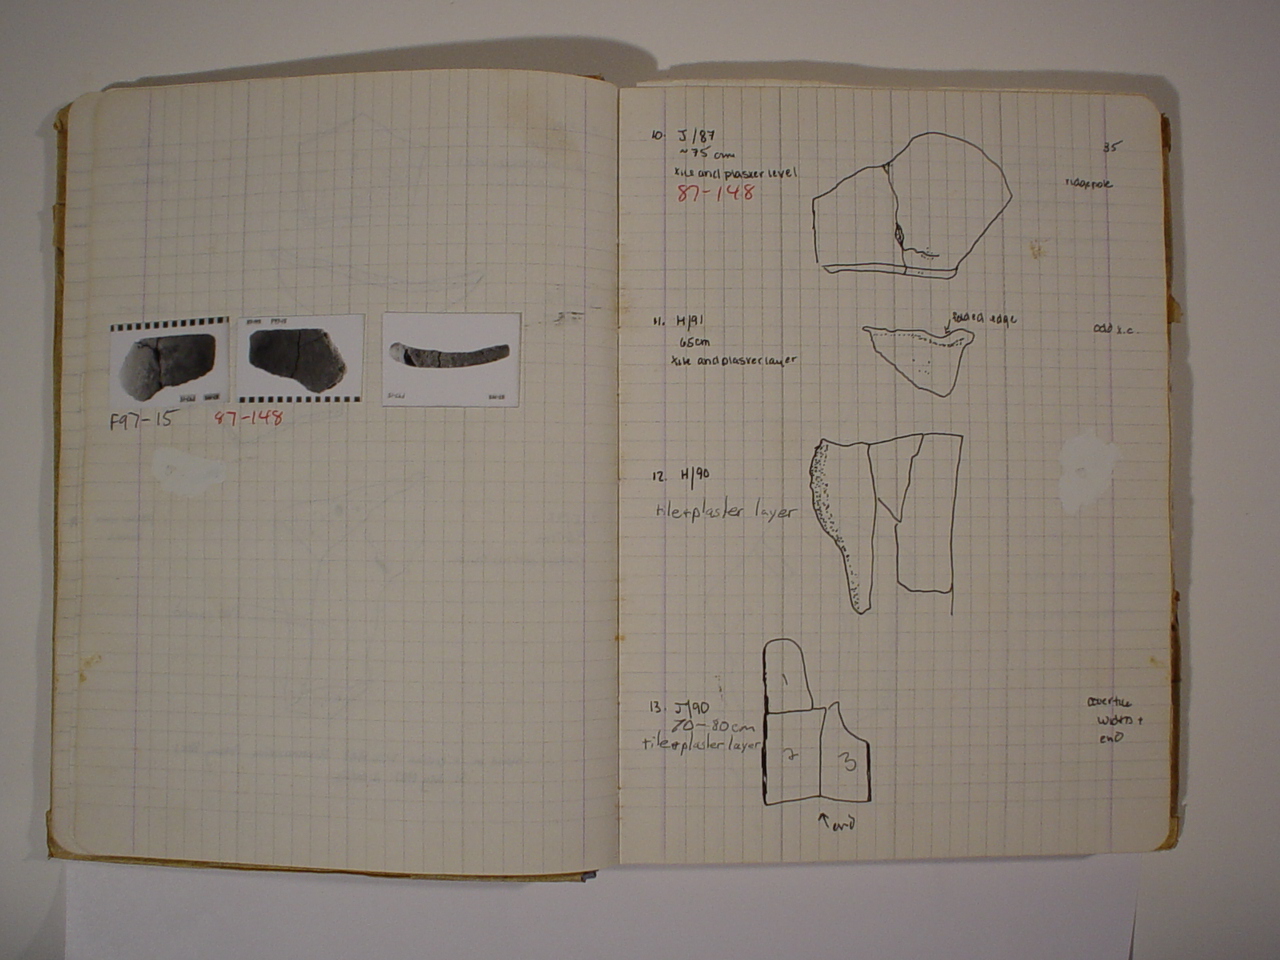 F97-15 87-148
35
10. J/87
~75 cm
tile and plaster level
87-148
ridgepole
11. H/91
65cm
tile and plaster layer
edge
odd s.c.
12. H/90
tile+plaster layer
13. J/90
70-80cm
tile+plaster layer
1
2
3
end
covertile
width +
end